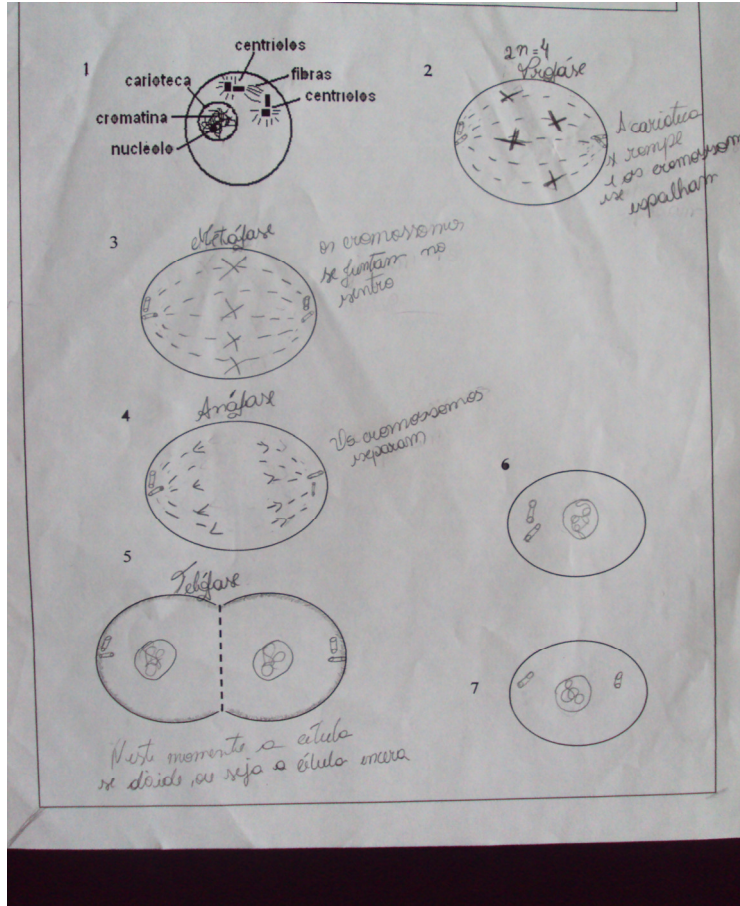 1
centríolos
carioteca
fibras
centríolos
cromatina
nucléolo
2
2n=4
Prófase
A carioteca
se rompe
e os cromossom
se
espalham
3
Metáfase
os cromossomos
se juntam no
centro
4
Anáfase
Os cromossomos
separam
5
Telófase
Neste momento a célula
se divide, ou seja a célula encera
6
7